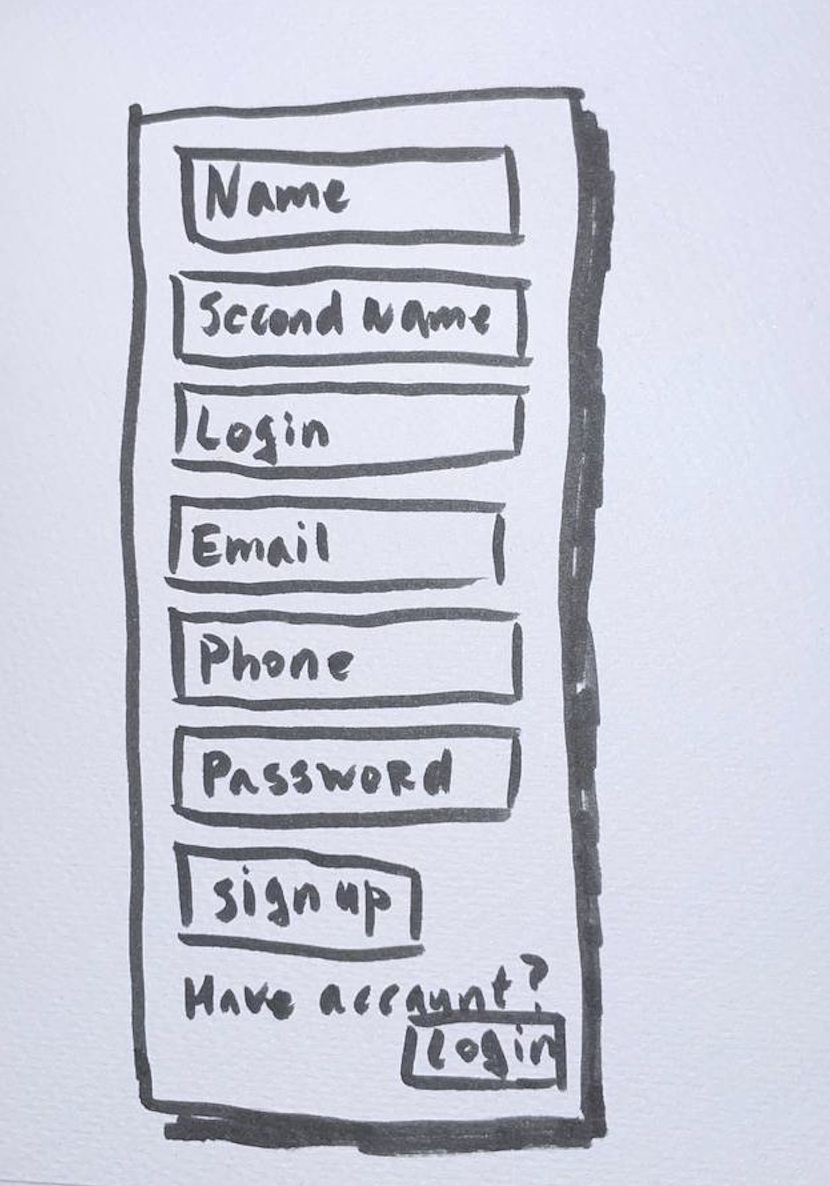 Name
Second Name
Login
Email
Phone
Password
sign up
Have account?
Login